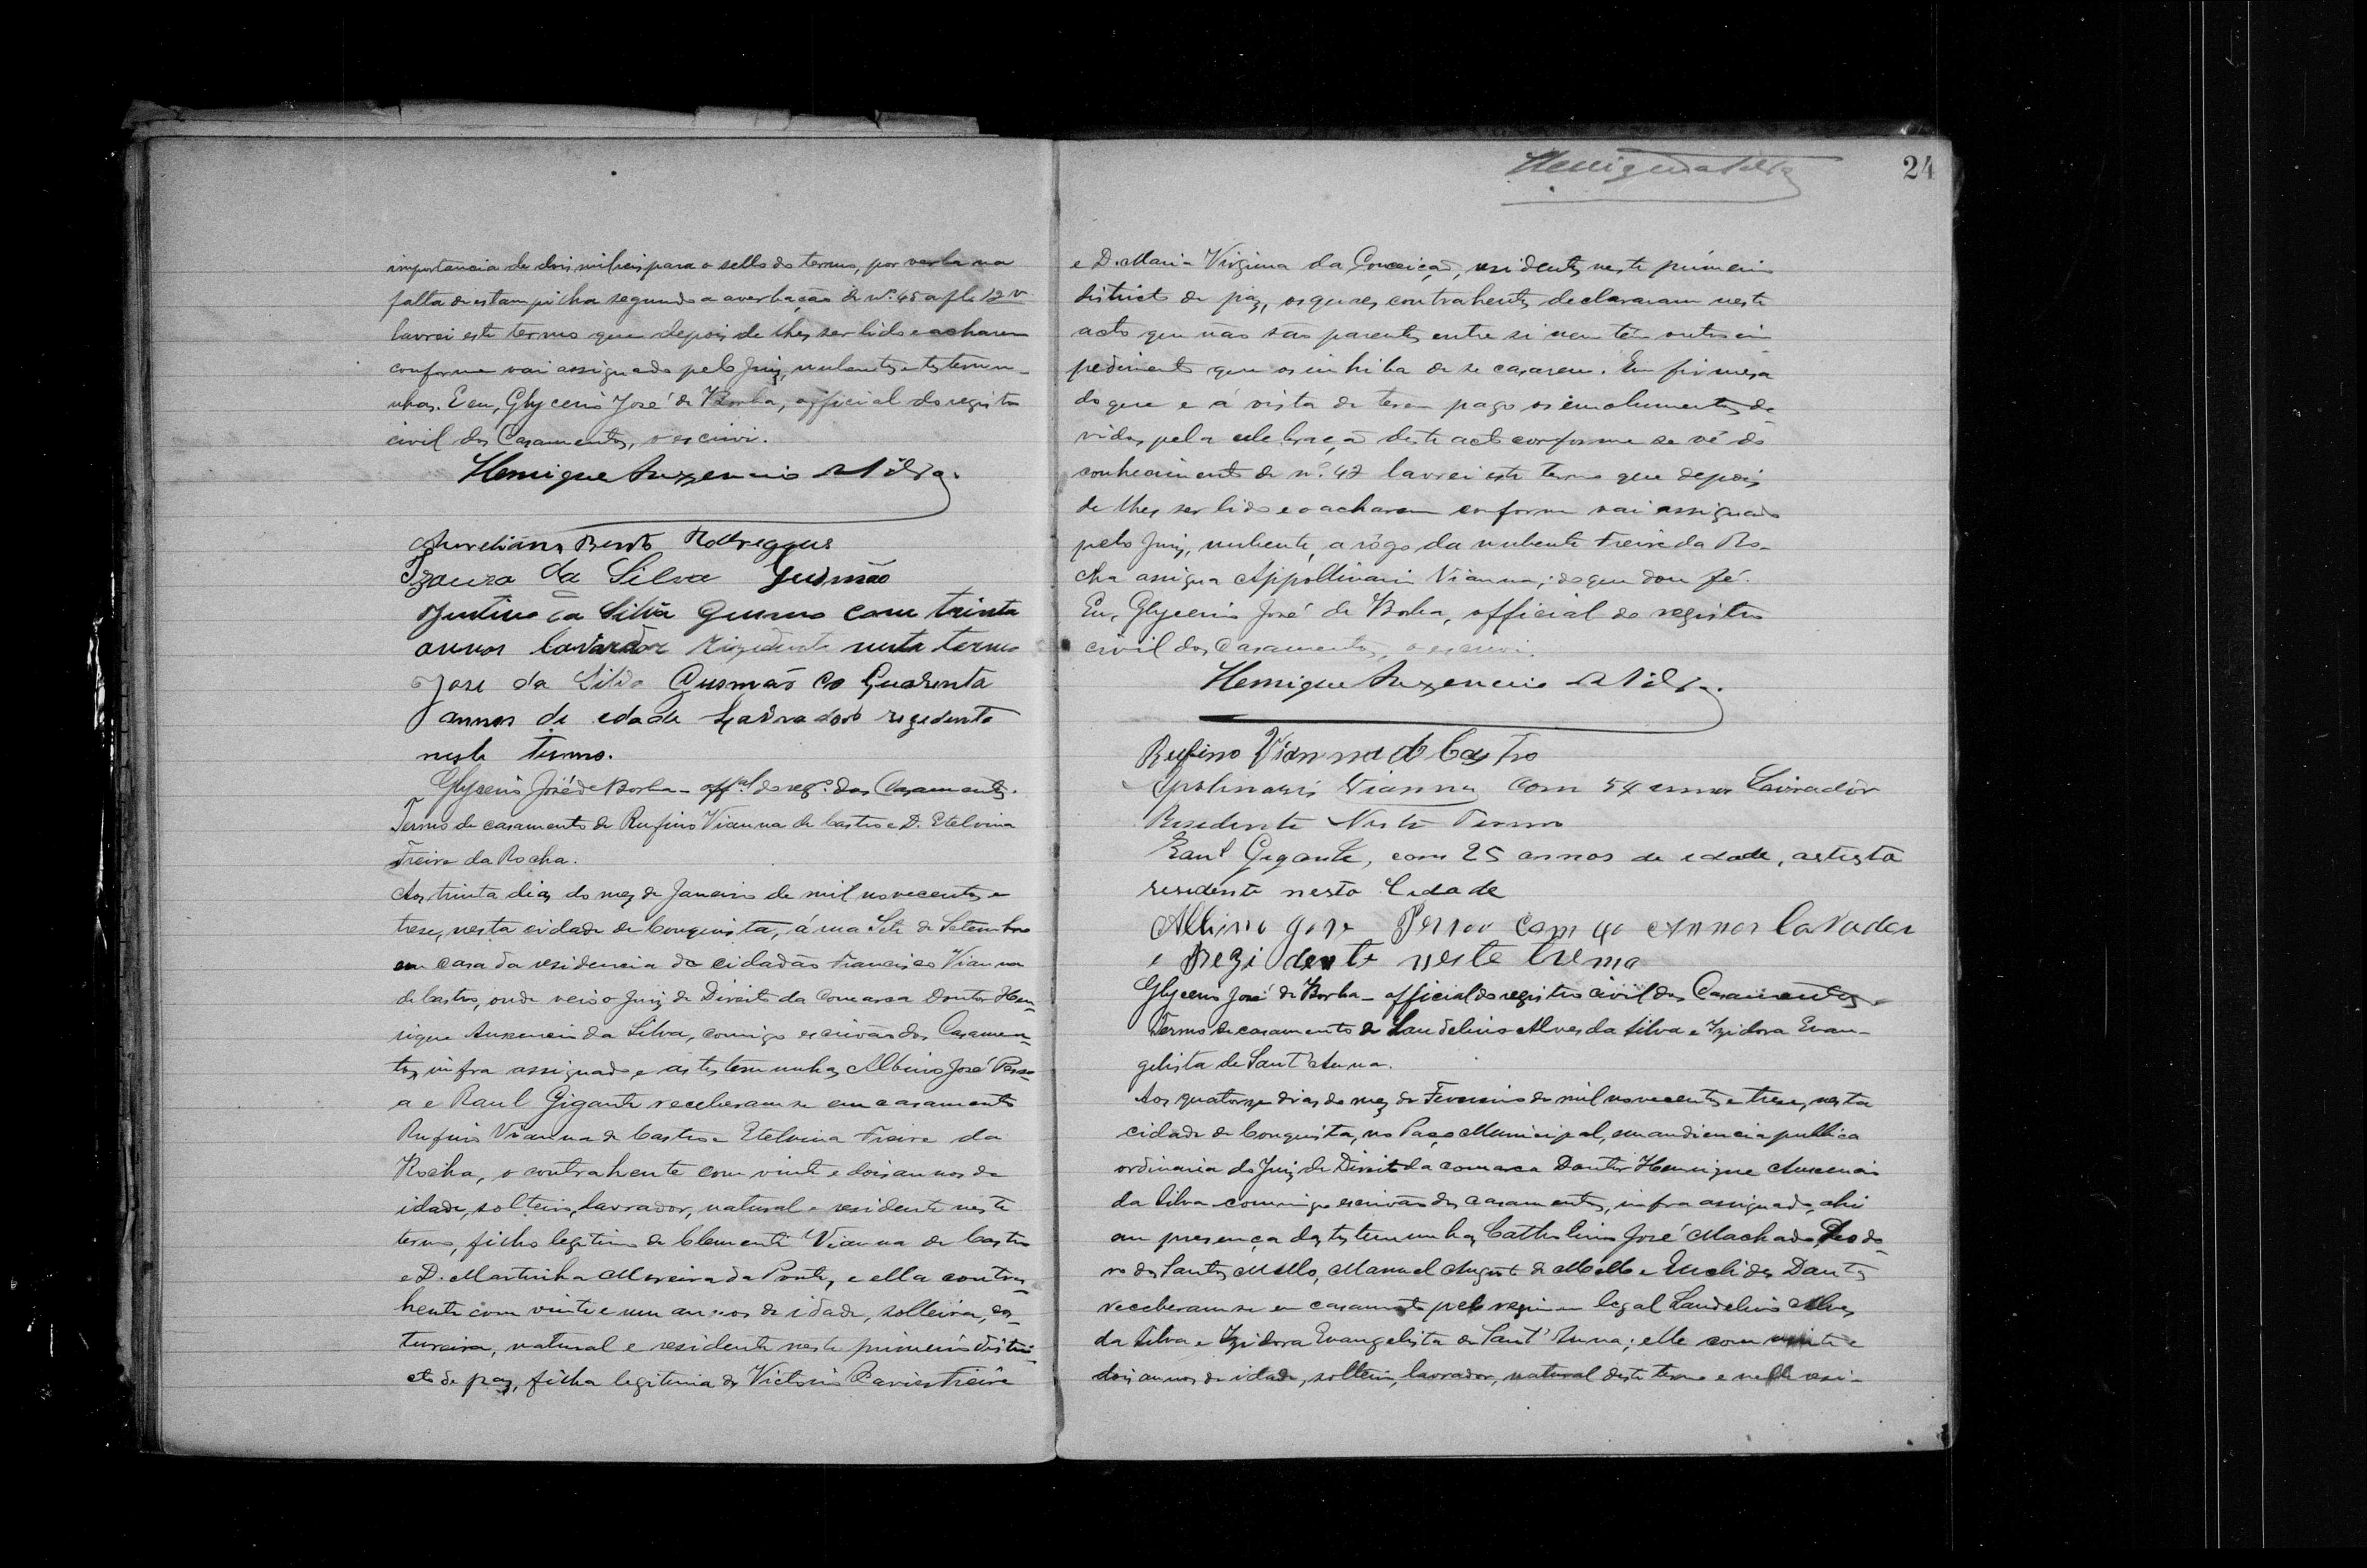 importancia de dois mil reis para o sello do termo, por verba na
falta de estampilha segundo a averbação de nº. 45 a fls 12 v
lavrei este termo que depois de lhes ser lido e acharem
conforme vai assignado pelo Juiz, nubentes e testemu-
nhas. E eu, Glycerio José de Borba, official do registro
civil dos Casamentos, o escrevi.
Henrique Auxencio da Silva.
Aureliano Bento Rodregques
Izaura da Silva Gusmão
Justino da Silva Gusmo com trinta
annos lavrador rizidente nesta termo
Jose da Silva Gusmão co Guarenta
annos de edade Lavrador rezedente
neste Termo.
Glycerio José de Borba - offal do regº. dos Casamentos.
Termo de casamento de Rufino Vianna de Castro e D. Etelvina
Freire da Rocha.
Aos trinta dias do mez de Janeiro de mil novecentos e
trese, nesta cidade de Conquista, á rua Sete de Setembro
em casa da residencia do cidadão Francisco Vianna
de Castro, onde veio o Juiz de Direito da Comarca Doutor Hen-
rique Auxencio da Silva, comigo escrivão dos Casamen-
tos, infra assignado, e as testemunhas Albino José Pesso-
a e Raul Gigante receberam se em casamento
Rufino Vianna de Castro e Etelvina Freire da
Rocha, o contrahente com vinte e dois annos de
idade, solteiro, lavrador, natural e residente neste
termo, filho legitimo de Clemente Vianna de Castro
e D. Martinha Moreira da Ponte, e ella contra-
hente com vinte e um annos de idade, solteira, cos-
tureira, natural e residente neste primeiro distri-
cto de paz, filha legitima de Victorio Freire
24
e D. Maria Virginia da Conceição, residentes neste primeiro
districto de paz, os quaes contrahentes declararam neste
acto que não são parentes entre si nem têm outro im
pedimento que os inhiba de se casarem. Em firmesa
do que e á vista de terem pago os emolumentos de
vidos pela celebração deste acto conforme se vê do
conhecimento de nº. 47 lavrei este termo que depois
de lhes ser lido e o acharem conforme vai assignado
pelo Juiz, nubente, a rôgo da nubente Freire da Ro-
cha assigna Appollinario Vianna; do que dou fé.
Eu, Glycerio José de Borba, official do registro
civil dos Casamentos, o escrevi.
Henrique Auxencio da Silva.
Rufino Vianna de Castro
Apolinario Vianna com 54 annos Lavradôr
Resedente Neste Termo
Raul Gigante, com 25 annos de edade, artista
residente nesta Cidade
Albino Jose Pessoa com 40 Annos lavrador
e Rezidente neste tremo
Glycerio José de Borba - official do registro civil dos Casamentos
Termo de casamento de Laudelino Alves da Silva e Izidora Evan-
gelista de Sant'Anna.
Aos quatorze dias do mez de Fevereiro de mil novecentos e trese, nesta
cidade de Conquista, no Paço Municipal, em audiencia publica
ordinaria do Juiz de Direito da comarca Doutor Henrique Auxencio
da Silva commigo escrivão dos casamentos, infra assignado, ahi
em presença das testemunhas Catholino José Machado, Deodo-
ro dos Santos Mello, Manuel Augusto de Mello e Euclides Dantas
receberam se em casamento pelo regimen legal Laudelino Alves
da Silva e Izidora Evangelista de Sant'Anna; elle com vinte e
dois annos de idade, solteiro, lavrador, natural deste termo e nelle resi-